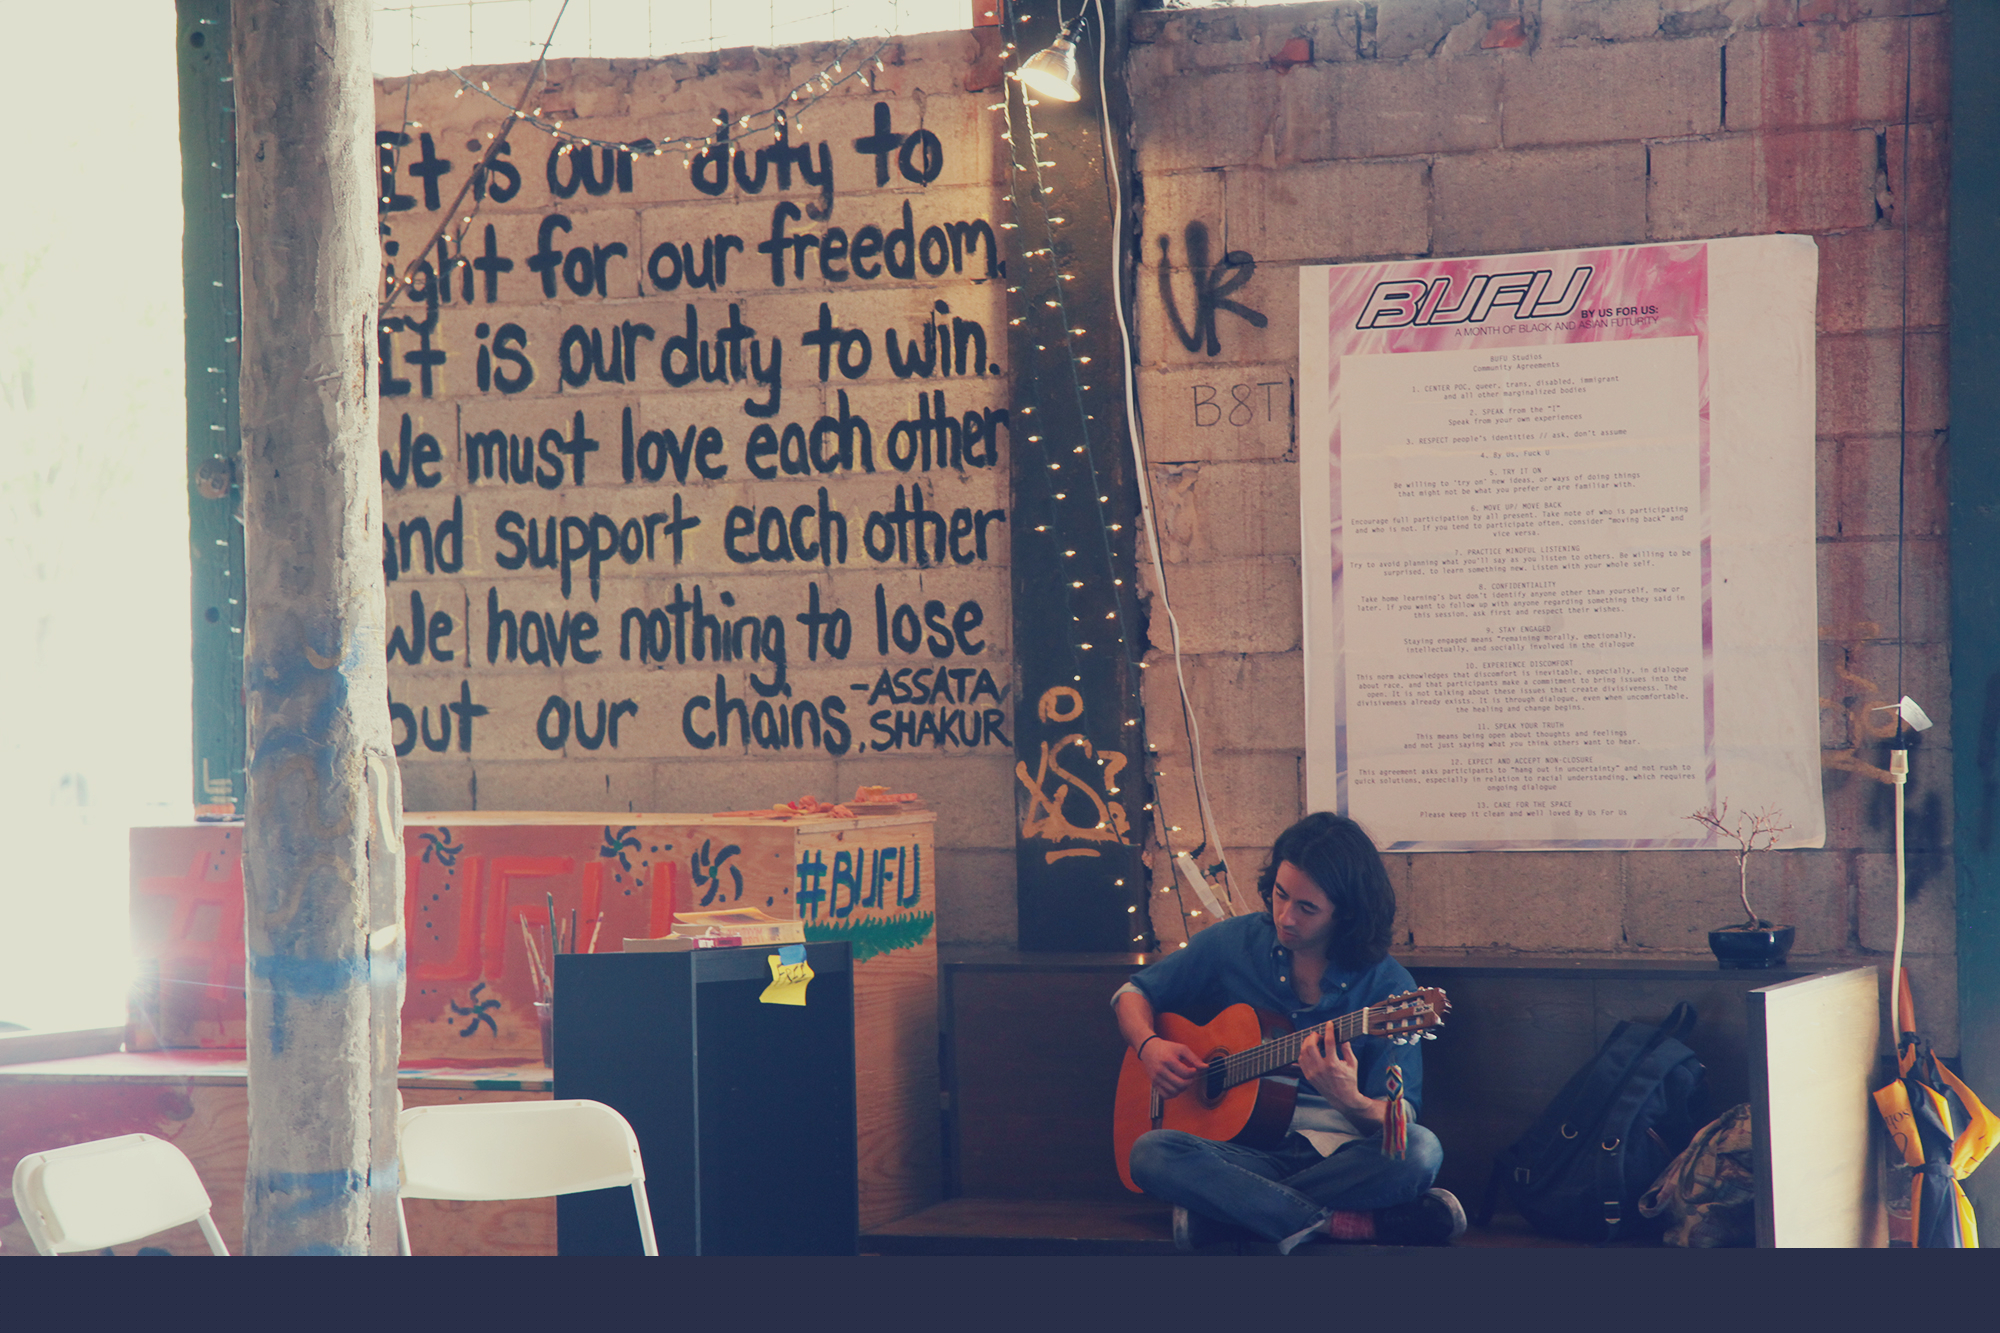 It is our duty to
ight for our freedom.
It is our duty to win.
We must love each other
and support each other
We have nothing to lose
but our chains.
-ASSATA
SHAKUR
UR
B8T
BUFU
BY US FOR US:
A MONTH OF BLACK AND ASIAN FUTURITY
BUFU Studios
Community Agreements
1. CENTER POC, queer, trans, disabled, immigrant
and all other marginalized bodies
2. SPEAK from the "I"
Speak from your own experiences
3. RESPECT people's identities // ask, don't assume
4. By Us, Fuck U
5. TRY IT ON
Be willing to 'try on' new ideas, or ways of doing things
that might not be what you prefer or are familiar with.
6. MOVE UP/ MOVE BACK
Encourage full participation by all present. Take note of who is participating
and who is not. If you tend to participate often, consider "moving back" and
vice versa.
7. PRACTICE MINDFUL LISTENING
Try to avoid planning what you'll say as you listen to others. Be willing to be
surprised, to learn something new. Listen with your whole self.
8. CONFIDENTIALITY
Take home learning's but don't identify anyone other than yourself, now or
later. If you want to follow up with anyone regarding something they said in
this session, ask first and respect their wishes.
9. STAY ENGAGED
Staying engaged means "remaining morally, emotionally,
intellectually, and socially involved in the dialogue
10. EXPERIENCE DISCOMFORT
This norm acknowledges that discomfort is inevitable, especially, in dialogue
about race, and that participants make a commitment to bring issues into the
open. It is not talking about these issues that create divisiveness. The
divisiveness already exists. It is through dialogue, even when uncomfortable,
the healing and change begins.
11. SPEAK YOUR TRUTH
This means being open about thoughts and feelings
and not just saying what you think others want to hear.
12. EXPECT AND ACCEPT NON-CLOSURE
This agreement asks participants to "hang out in uncertainty" and not rush to
quick solutions, especially in relation to racial understanding, which requires
ongoing dialogue
13. CARE FOR THE SPACE
Please keep it clean and well loved By Us For Us
#BUFU
#BUFU
FREE